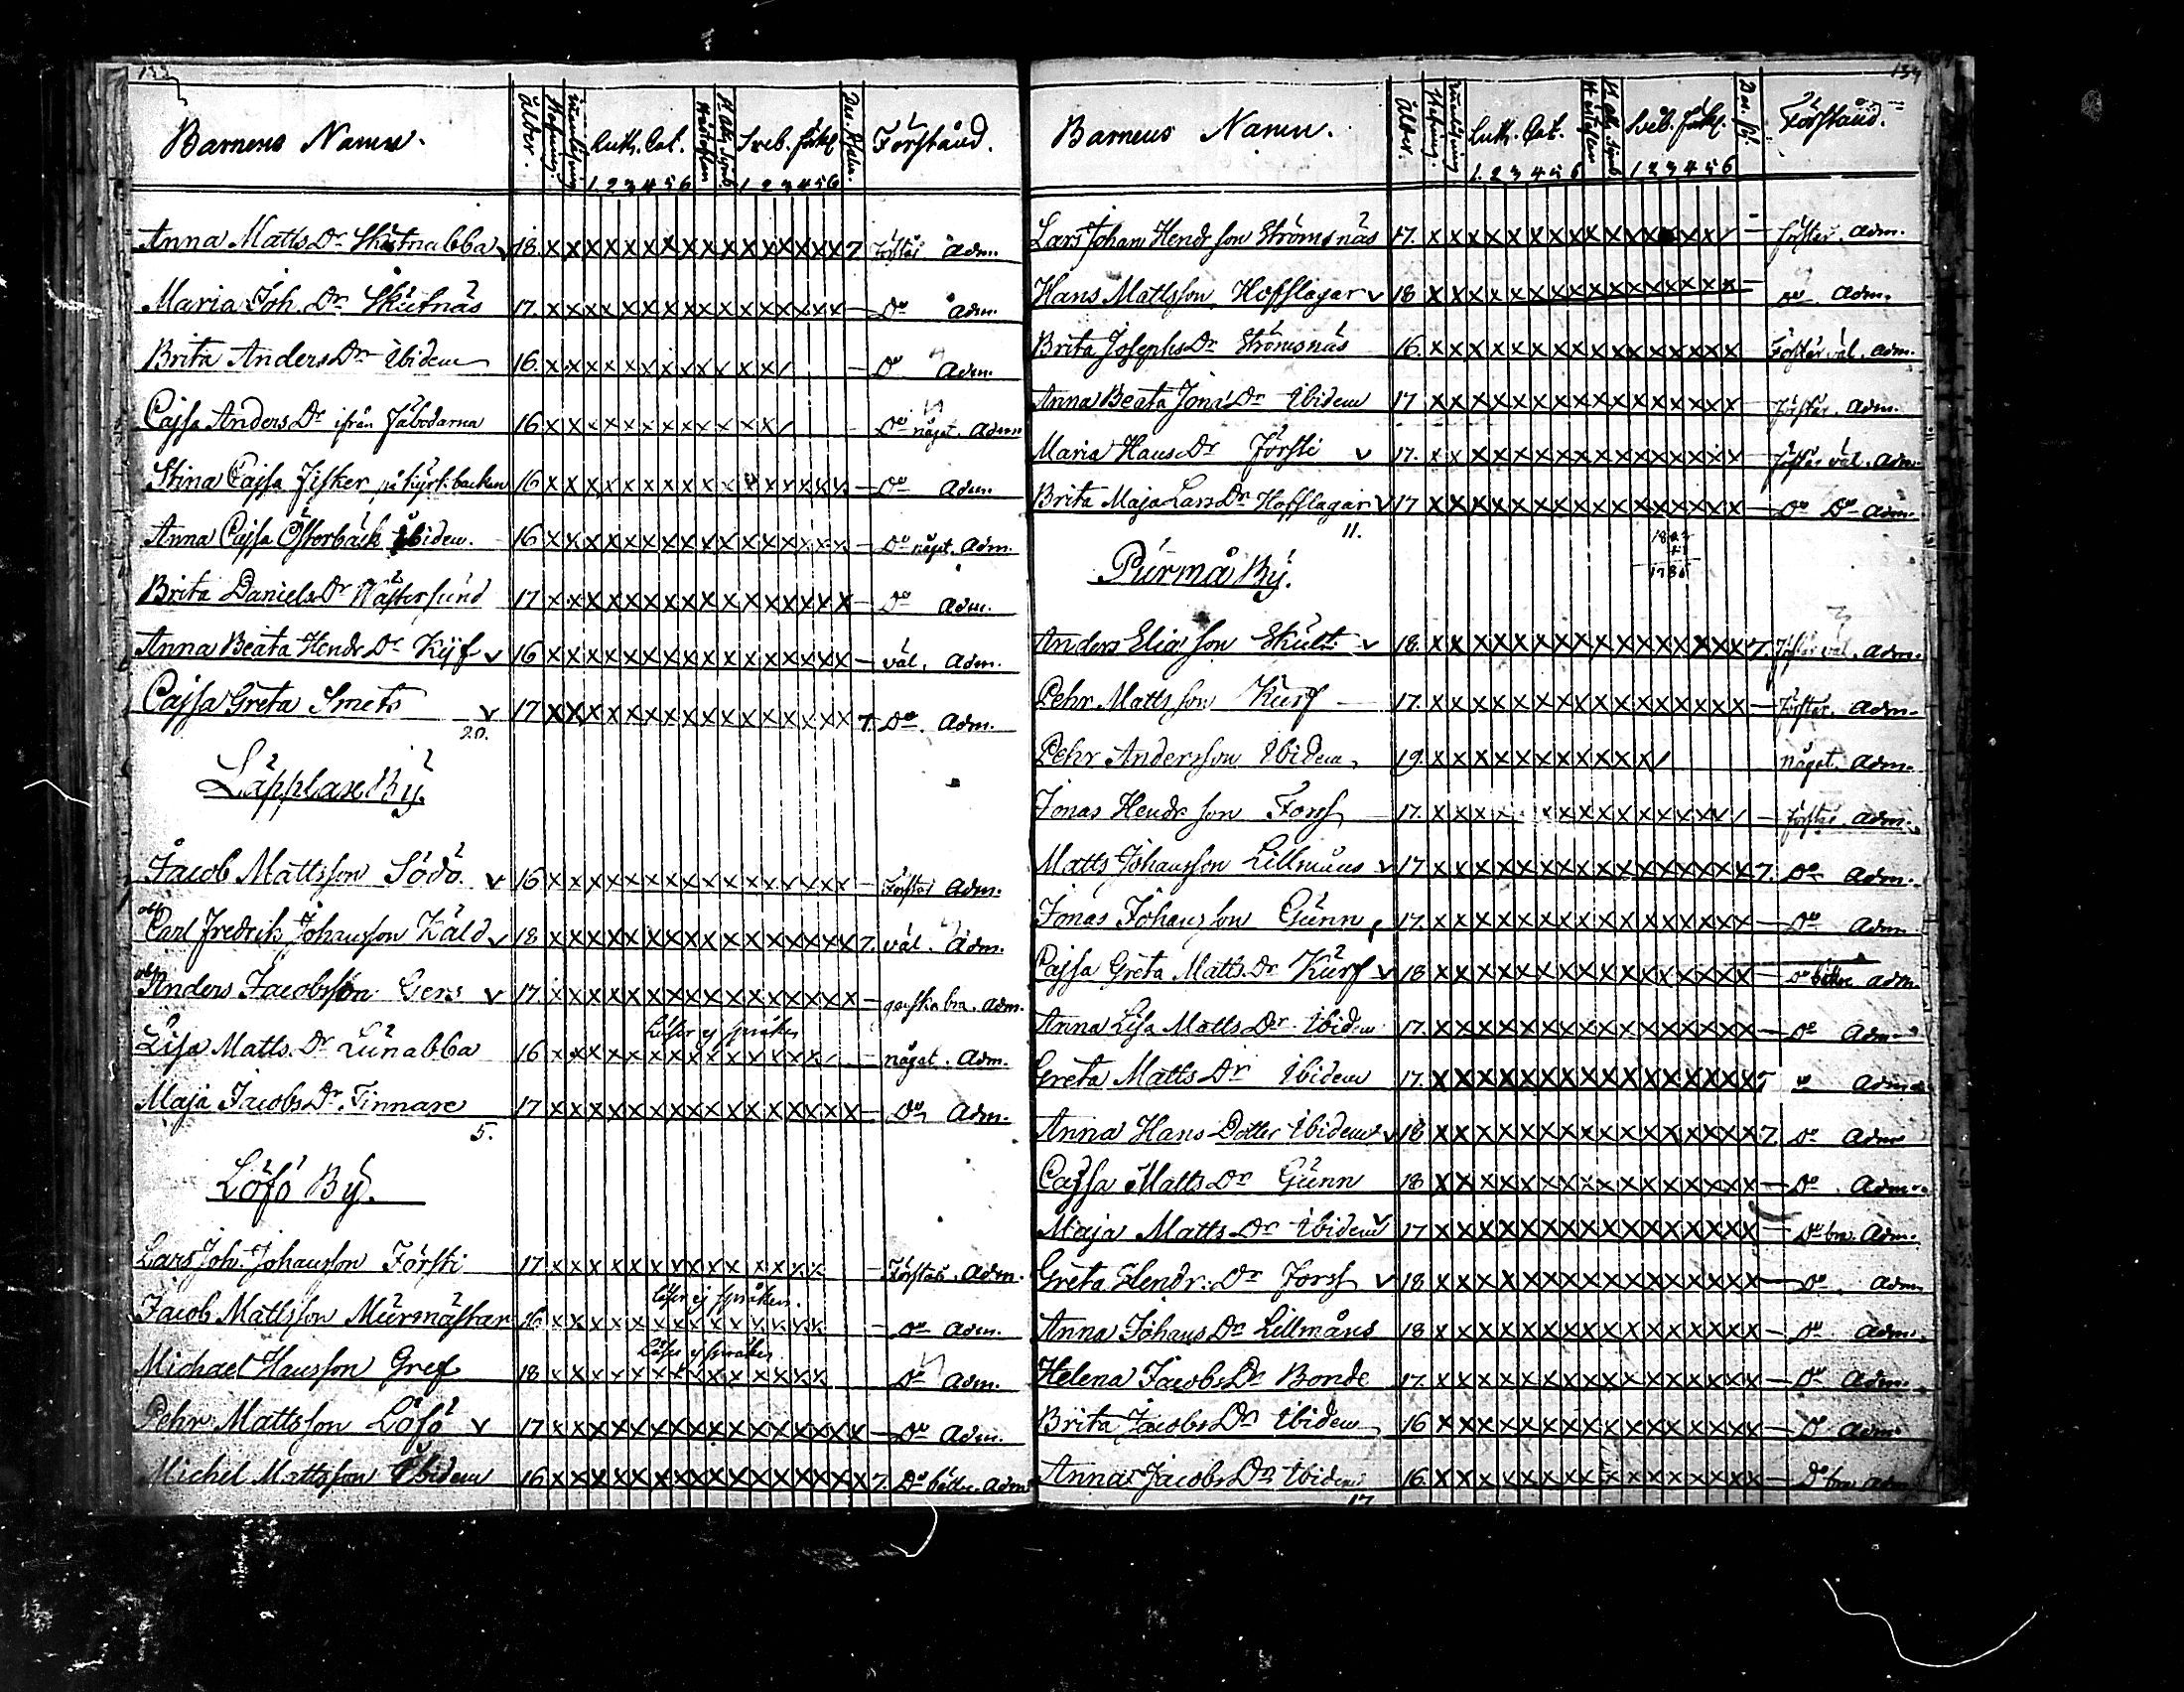 133
Barnens Namn. Ålder. Stafning. innanläsning Luth. Cat. 1 2 3 4 5 6 Hustaflan H. Ath. Symb. Sveb. Förkl. 1 2 3 4 5 6 Dav. Psalm. Förstånd.
Anna Matts Dr Skutnabba v 18. x x x x x x x x x x x x x x x x 7 Förstår Adm.
Maria Joh. Dr Skutnäs 17. x x x x x x x x x x x x x x x x — Do Adm.
Brita Anders Dr Ibidem 16. x x x x x x x x x x x x / — Do Adm.
Cajsa Anders Dr ifrån Fäbodarna 16 x x x x x x x x x x x x / — Do något. Adm
Stina Cajsa Fisker på Kyrkbacken 16 x x x x x x x x x x x x x x x x — Do Adm.
Anna Cajsa Österback Ibidem. 16 x x x x x x x x x x x x x x x x — Do något. Adm.
Brita Daniels Dr Wästersund 17 x x x x x x x x x x x x x x x x — Do Adm.
Anna Beata Hendr Dr Kyf v 16 x x x x x x x x x x x x x x x x — väl. Adm.
Cajsa Greta Smets v 17 x x x x x x x x x x x x x x x x 7. Do. Adm.
20.
Läpplax By.
Jacob Mattsson Södö. v 16 x x x x x x x x x x x x x x x x — Förstår Adm.
Carl Fredrik Johansson Käld v 18 x x x x x x x x x x x x x x x x 7. väl. Adm.
Anders Jacobsson Gers v 17. x x x x x x x x x x x x x x x x — ganska bra. Adm.
Läser ej språken
Lisa Matts Dr Lunabba 16 x x x x x x x x x x x x x x / — något. Adm.
Maja Jacobs Dr Finnare 17 x x x x x x x x x x x x x x x x — Do Adm.
5.
Löfö By.
Lars Joh. Johansson Försti 17 x x x x x x x x x x x x x x — Förstår. Adm.
läser ej språken.
Jacob Mattsson Murmästar 16 x x x x x x x x x x x x x x — Do Adm.
Läser ej språken.
Michael Hansson Gref 18 x x x x x x x x x x x x x x Do Adm.
Pehr Mattsson Löfö v 17 x x x x x x x x x x x x x x x x — Do Adm.
Michel Mattsson Ibidem 16 x x x x x x x x x x x x x x x x 7. Do bättre. Adm
134
Barnens Namn. Ålder. Stafning. innanläsning Luth. Cat. 1. 2 3 4 5 6 Hustaflan H. Ath. Symb. Sveb. Förkl. 1 2 3 4 5 6 Dav. Ps. Förstånd.
Lars Johan Hendrson Strömsnäs 17. x x x x x x x x x x x x x x x / — förstår. Adm.
Hans Mattsson Hofslagar v 18 x x x x x x x x x x x x x x x x — Do Adm.
Brita Josephs Dr Strömsnäs 16. x x x x x x x x x x x x x x x x Förstår väl. Adm.
Anna Beata Jona Dr Ibidem 17 x x x x x x x x x x x x x x x x — förstår. Adm.
Maria Hans Dr Försti v 17. x x x x x x x x x x x x x x x x — förstår väl. Adm.
Brita Maja Lars Dr Hofslagar v 17 x x x x x x x x x x x x x x x x — Do Do Adm.
11.
Purmå By.
Anders Eliæson Skutt v 18. x x x x x x x x x x x x x x x x 7. Förstår väl. Adm.
Pehr Mattsson Kurf — 17. x x x x x x x x x x x x x x x x — Förstår. Adm.
Pehr Andersson Ibidem 19. x x x x x x x x x x x / något. Adm.
Jonas Hendrson Forss 17. x x x x x x x x x x x x x x x / — förstår. Adm.
Matts Johansson Lillmåns v 17 x x x x x x x x x x x x x x x x 7. Do Adm.
Jonas Johansson Gunn 17. x x x x x x x x x x x x x x x x — Do Adm
Cajsa Greta Matts Dr Kurf v 18 x x x x x x x x x x x x x x x x — Do bättre Adm.
Anna Lisa Matts Dr Ibidem 17. x x x x x x x x x x x x x x x x — Do Adm
Greta Matts Dr Ibidem 17. x x x x x x x x x x x x x x x x 7 Adm
Anna Hans Dotter Ibidem v 18 x x x x x x x x x x x x x x x x 7. Do Adm
Cajsa Matts Dr Gunn 18 x x x x x x x x x x x x x x x x — Do. Adm
Maja Matts Dr Ibidem v 17 x x x x x x x x x x x x x x x x — Do bra. Adm.
Greta Hendr. Dr Forss v 18 x x x x x x x x x x x x x x x x — Do. Adm
Anna Johans Dr Lillmåns 18 x x x x x x x x x x x x x x x x — Do Adm.
Helena Jacobs Dr Bonde 17. x x x x x x x x x x x x x x x x — Do Adm.
Brita Jacobs Dr Ibidem 16 x x x x x x x x x x x x x x x x — Do Adm
Anna Jacobs Dr Ibidem 16. x x x x x x x x x x x x x x x x — Do bra Adm
17